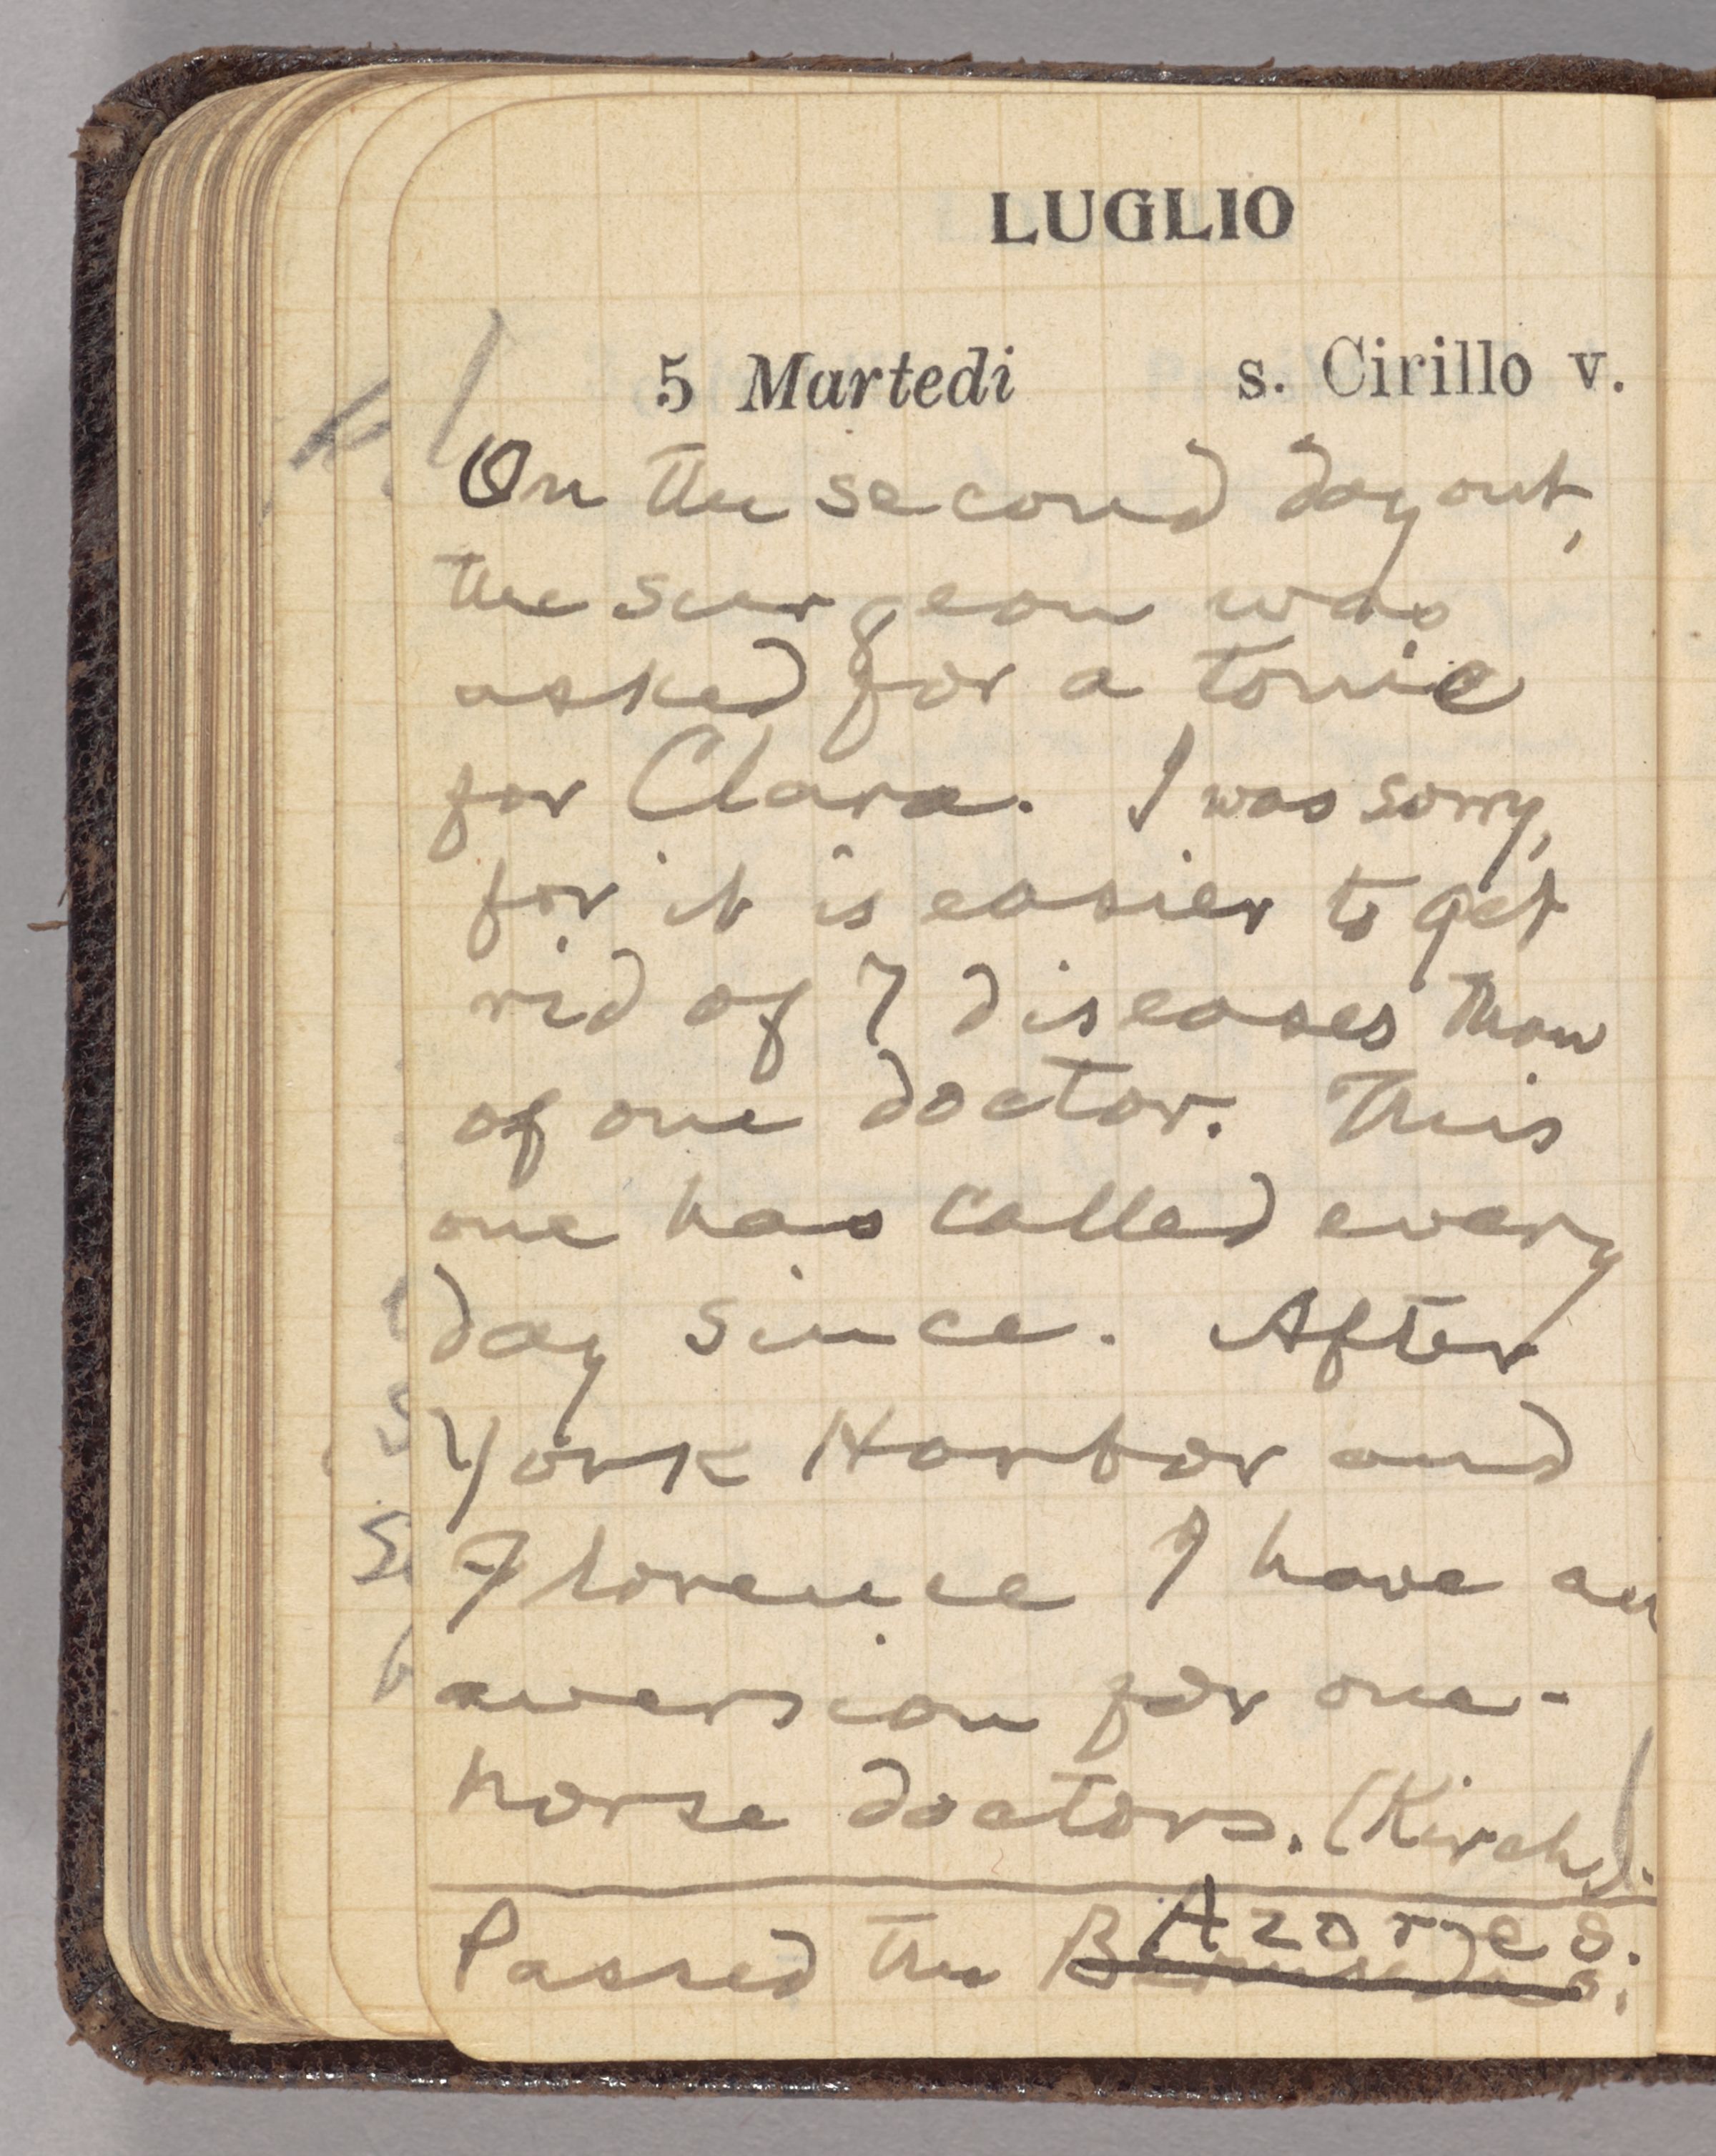 LUGLIO
5 Martedi s. Cirillo v.
On the second day out,
the surgeon was
asked for a tonic
for Clara. I was sorry,
for it is easier to get
rid of 7 diseases than
of one doctor. This
one has called every
day since. After
York Harbor and
Florence I have an
aversion for one-
horse doctors. (Kirch).
Azores.
Passed the Bermudas;